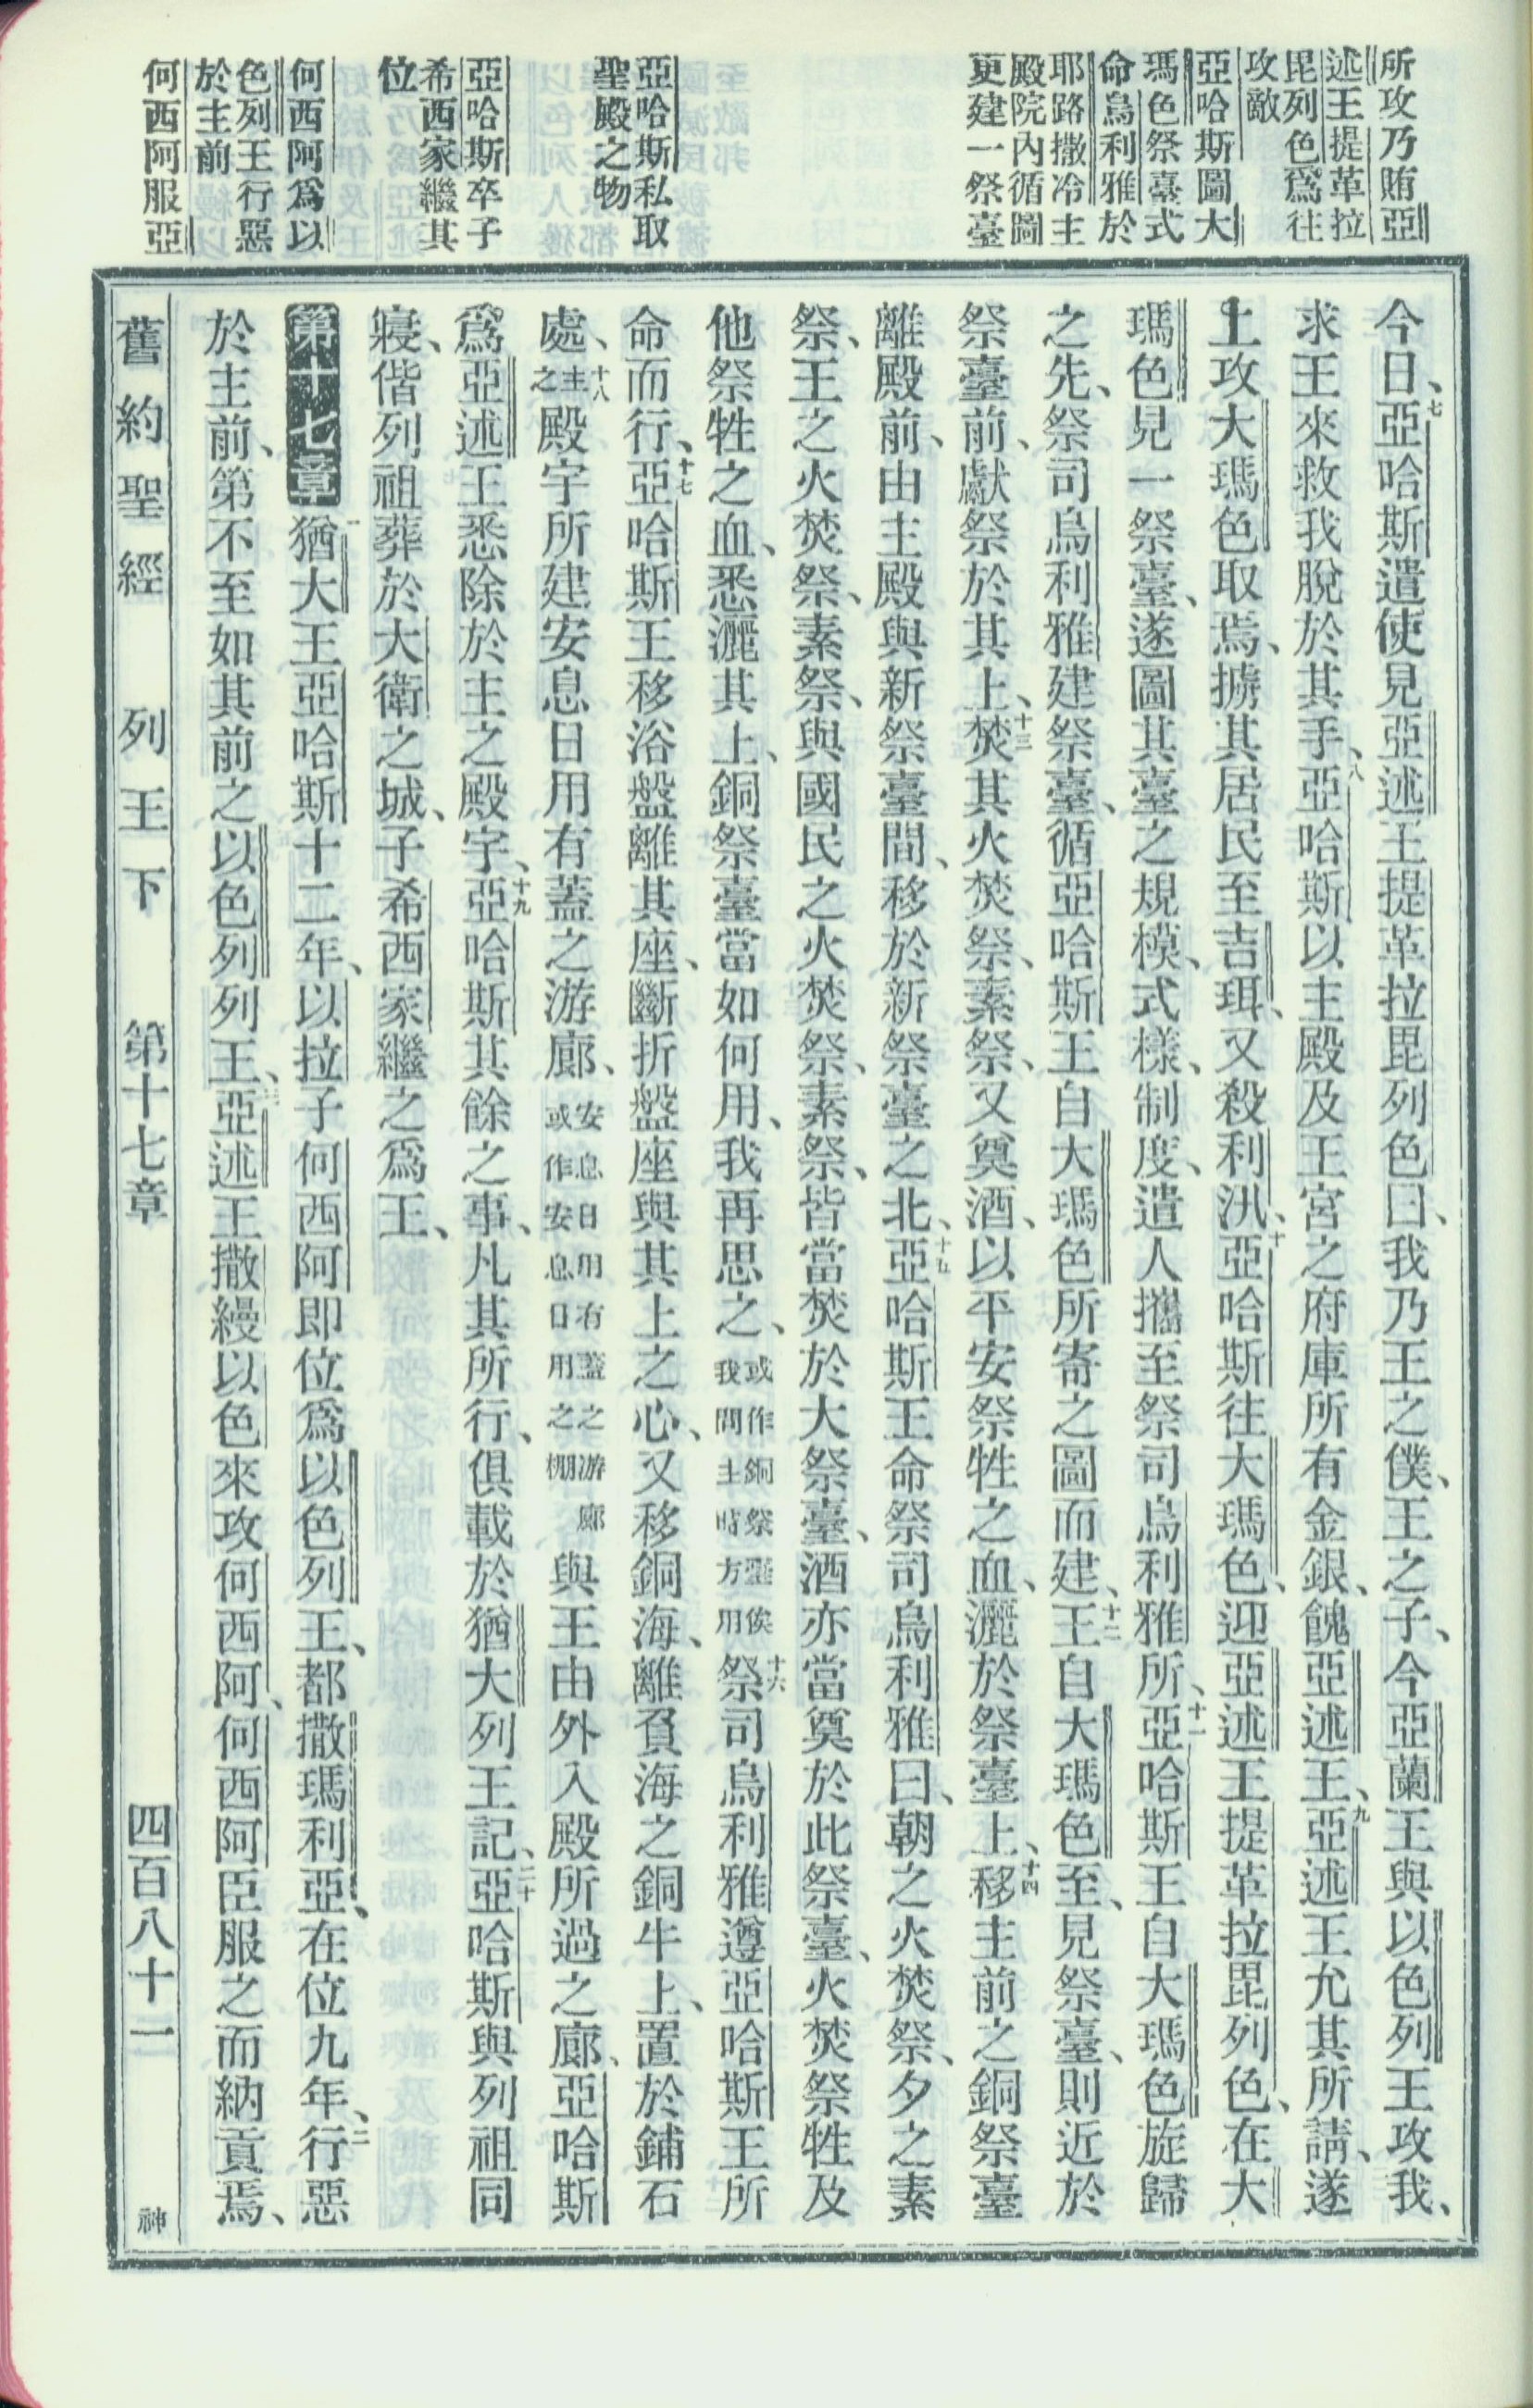 所攻乃賄亞
述王提革拉
毘列色爲往
攻敵
亞哈斯圖大
瑪色祭臺式
命烏利雅於
耶路撒冷主
殿院內循圖
更建一祭臺
亞哈斯私取
聖殿之物
亞哈斯卒子
希西家繼其
位
何西阿爲以
色列王行惡
於主前
何西阿服亞
今日、七亞哈斯遣使見亞述王提革拉毘列色曰、我乃王之僕、王之子、今亞蘭王與以色列王攻我、
求王來救我脫於其手、八亞哈斯以主殿及王宮之府庫所有金銀、餽亞述王、九亞述王允其所請、遂
上攻大瑪色取焉、擄其居民至吉珥、又殺利汛、十亞哈斯往大瑪色、迎亞述王提革拉毘列色、在大
瑪色見一祭臺、遂圖其臺之規模、式樣、制度、遣人攜至祭司烏利雅所、十一亞哈斯王自大瑪色旋歸
之先、祭司烏利雅建祭臺、循亞哈斯王自大瑪色所寄之圖而建、十二王自大瑪色至、見祭臺、則近於
祭臺前、獻祭於其上、十三焚其火焚祭、素祭、又奠酒、以平安祭牲之血、灑於祭臺上、十四移主前之銅祭臺
離殿前、由主殿與新祭臺間、移於新祭臺之北、十五亞哈斯王命祭司烏利雅曰、朝之火焚祭、夕之素
祭、王之火焚祭、素祭、與國民之火焚祭、素祭、皆當焚於大祭臺、酒亦當奠於此祭臺、火焚祭牲及
他祭牲之血、悉灑其上、銅祭臺當如何用、我再思之、或作銅祭臺俟我問主時方用十六祭司烏利雅遵亞哈斯王所
命而行、十七亞哈斯王移浴盤離其座、斷折盤座與其上之心、又移銅海、離負海之銅牛上、置於鋪石
處、十八主之殿宇所建安息日用有蓋之游廊、安息日用有蓋之游廊或作安息日用之棚與王由外入殿所過之廊、亞哈斯
爲亞述王悉除於主之殿宇、十九亞哈斯其餘之事、凡其所行、俱載於猶大列王記、二十亞哈斯與列祖同
寢、偕列祖葬於大衛之城、子希西家繼之爲王、
第十七章一猶大王亞哈斯十二年、以拉子何西阿卽位爲以色列王、都撒瑪利亞、在位九年、二行惡
於主前、第不至如其前之以色列列王、三亞述王撒縵以色來攻何西阿、何西阿臣服之而納貢焉、
舊約聖經　列王下　第十七章　四百八十一　神